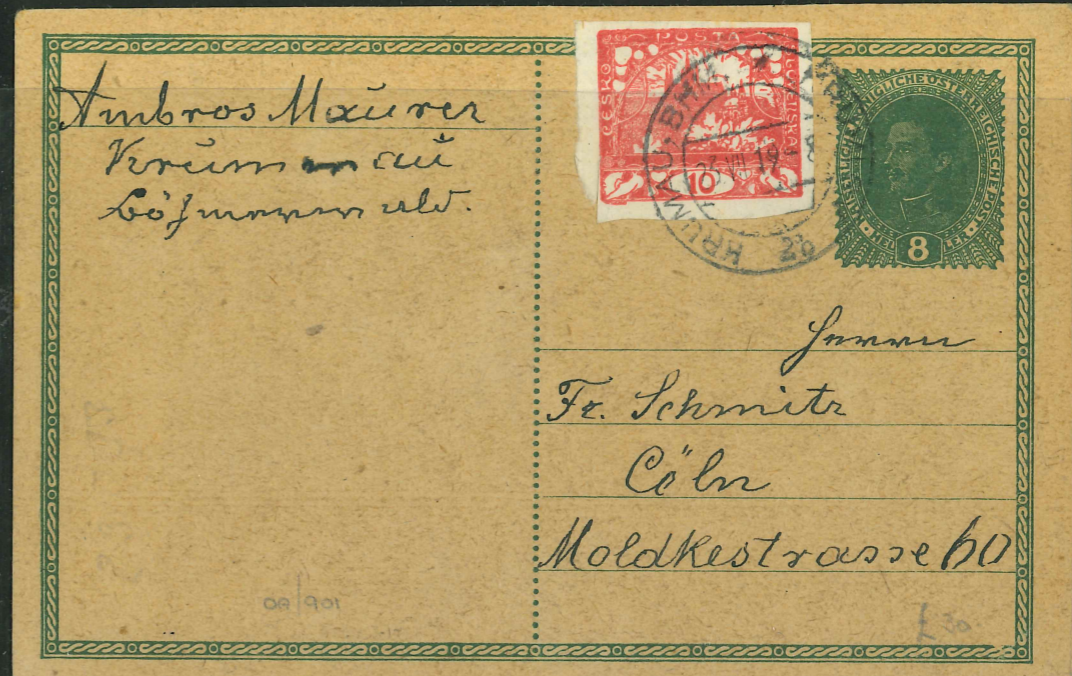 Ambros Maurer
Krummau
Böhmerwald.
POSTA
ČESKO
SLOVENSKÁ
10
KRUMAU BHM.
2b
KAISERLICHE KÖNIGLICHE ÖSTERREICHISCHE POST
8
HELLER
Herrn
Fr. Schmitz
Cöln
Moldkestrasse 60
OA/901
£ 30